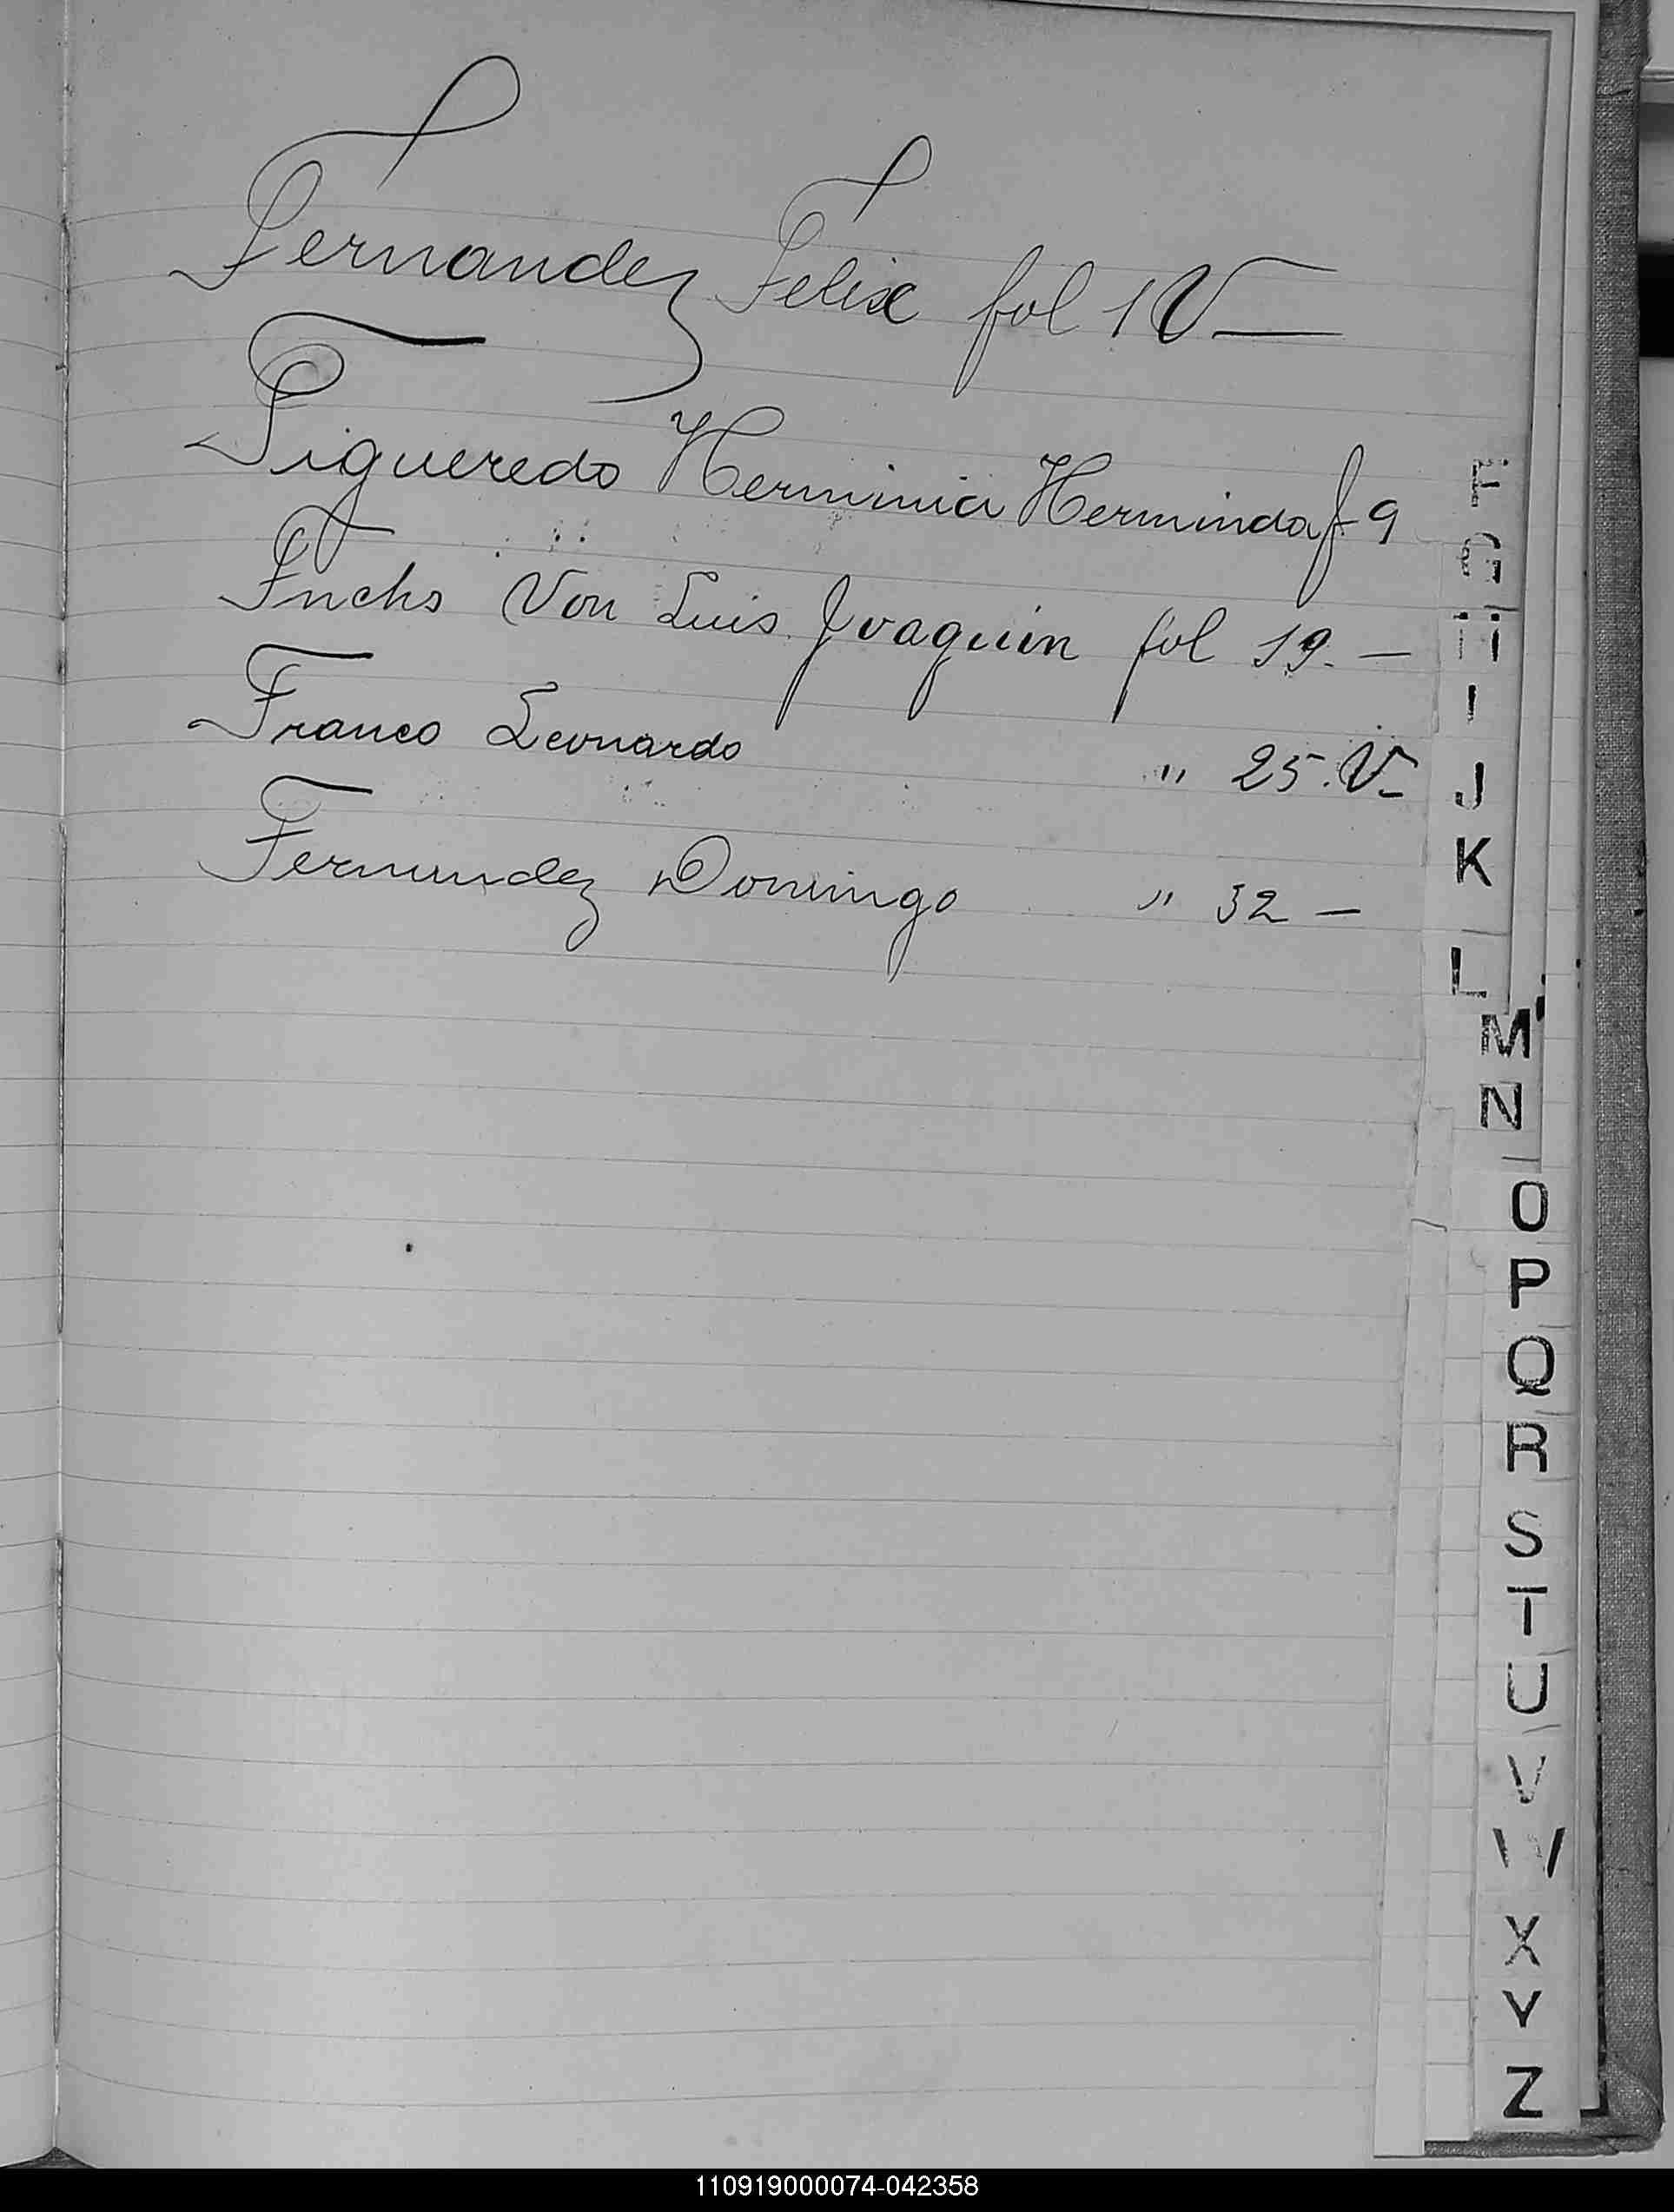 Fernandez Felix fol 1 V —
Figueredo Herminia Herminda f 9
Fuchs Von Luis Joaquin fol 19. —
Franco Leonardo " 25. V —
Fernundez Domingo " 32 —
F
G
H
I
J
K
L
M
N
O
P
Q
R
S
T
U
V
W
X
Y
Z
110919000074-042358